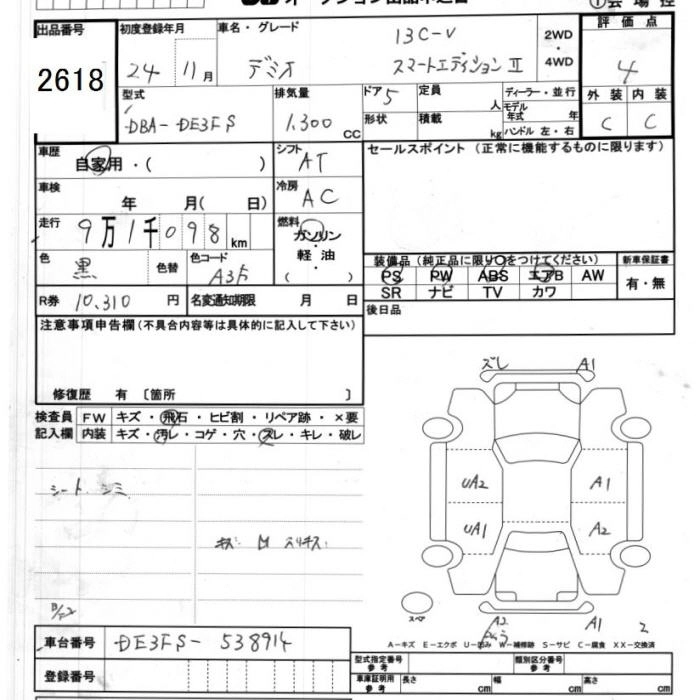 出品番号 2618
初度登録年月 24 11月
車名・グレード デミオ 13C-V スマートエディションⅡ
2WD・4WD
評価点 4
外装 C 内装 C
型式 DBA-DE3FS
排気量 1,300 CC
ドア 5
形状
定員 人
積載 kg
ディーラー・並行
モデル年式 年
ハンドル 左・右
車歴 自家用・( )
シフト AT
セールスポイント (正常に機能するものに限ります)
車検 年 月( 日)
冷房 AC
走行 9万1千098 km
燃料 ガソリン・軽油 ( )
色 黒 色替 色コード A3F
装備品(純正品に限り○をつけてください)
PS PW ABS エアB AW
SR ナビ TV カワ
新車保証書 有・無
R券 10,310 円 名変通知期限 月 日
後日品
注意事項申告欄(不具合内容等は具体的に記入して下さい)
修復歴 有 〔箇所 〕
検査員記入欄
FW キズ・飛石・ヒビ割・リペア跡・×要
内装 キズ・汚レ・コゲ・穴・スレ・キレ・破レ
シート シミ
ズレ A1
UA2 A1
UA1 A2
スペア
A2 A1 2
A-キズ E-エクボ U-凹み W-補修跡 S-サビ C-腐食 XX-交換済
車台番号 DE3FS-538914
登録番号
型式指定番号 参考 類別区分番号 参考
車庫証明用 参考 長さ cm 幅 cm 高さ cm